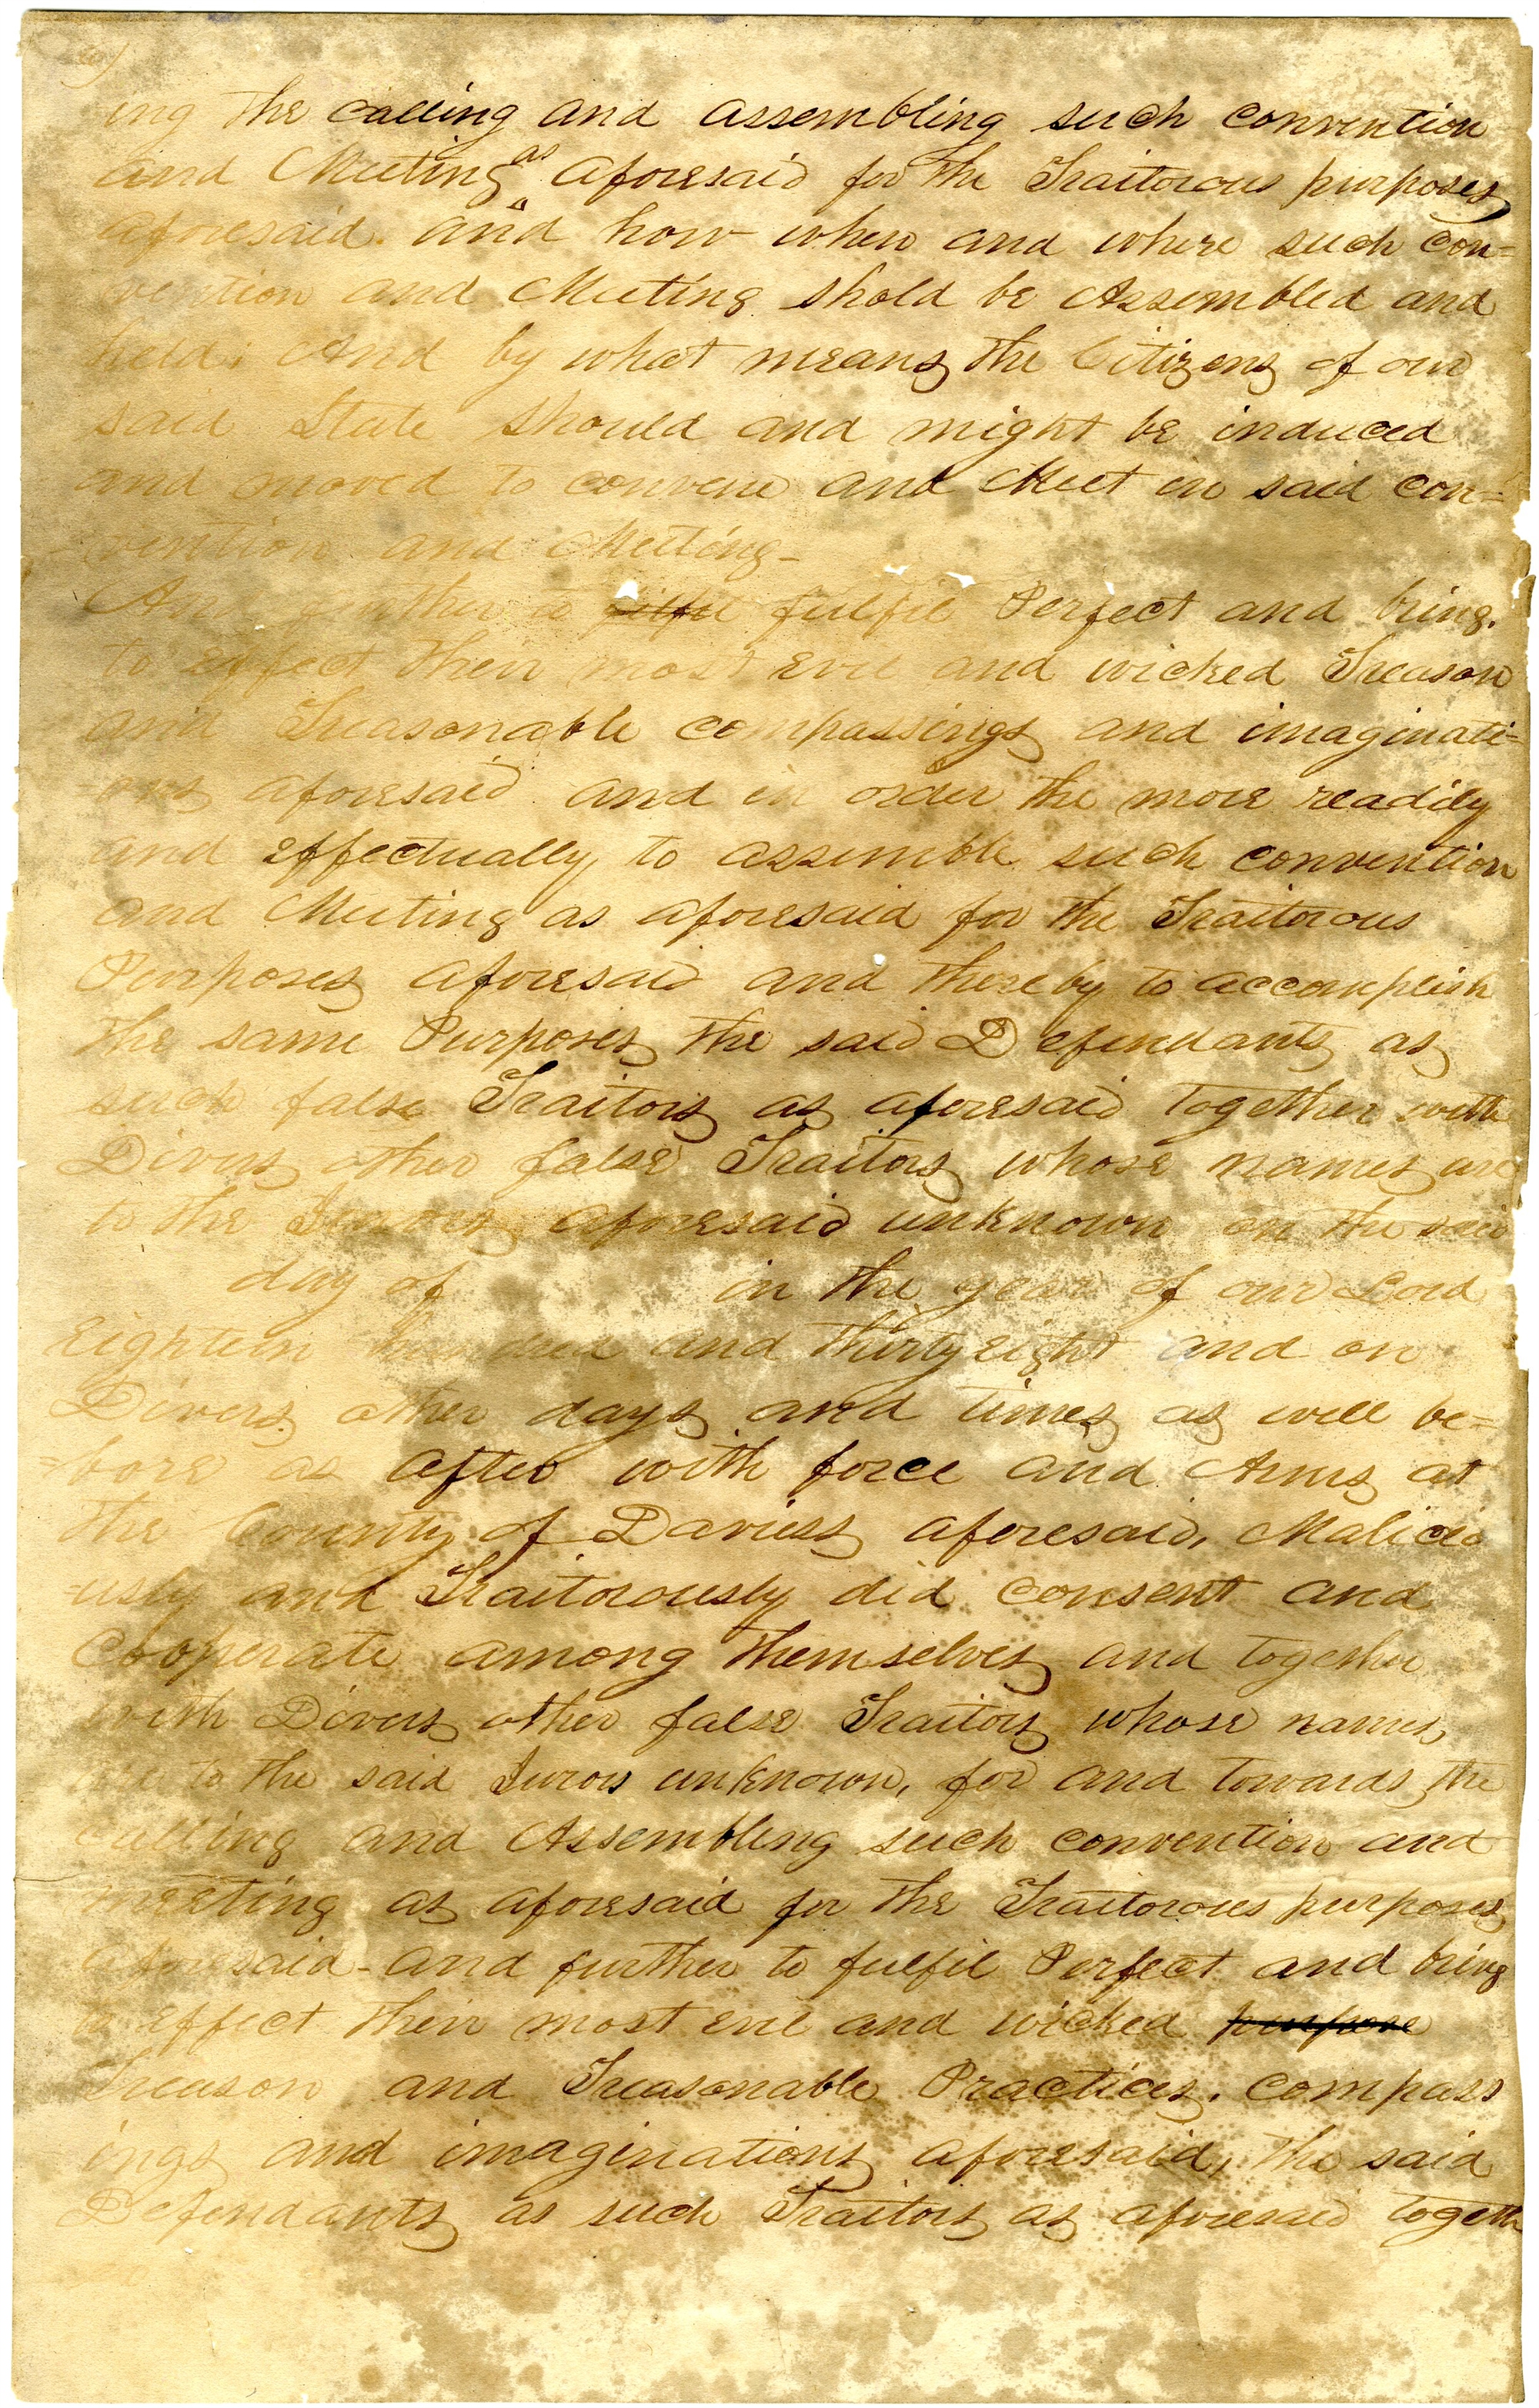 ing the calling and assembling such convention
and Meeting as aforesaid for the Traitorous purposes
aforesaid. and how when and where such con=
vention and Meeting shold be Assembled and
held; And by what means the Citizens of our
said State should and might be induced
and moved to convene and Meet in said con=
vention and Meeting-
And further to fulfil fulfil Perfect and bring.
to effect their most evil and wicked Treason
and Treasonable compassings and imaginati=
ons aforesaid and in order the more readily
and effectually to assemble such convention
and Meeting as aforesaid for the Traitorous
Purposes aforesaid and thereby to accomplish
the same Purposes the said Defendants as
such false Traitors as aforesaid together with
Divers other false Traitors whose names are
to the Jurors aforesaid unknown on the said
day of in the year of our Lord
Eighteen hundred and thirty eight and on
Divers other days and times as well be=
=bore as after with force and Arms at
the County of Daviess aforesaid, Malicio
=usly and Traitorously did consent and
Cooperate among themselves and together
with Divers other false Traitors whose names
are to the said Jurors unknown, for and towards the
calling and Assembling such convention and
meeting as aforesaid for the Traitorous purposes
aforesaid - and further to fulfil Perfect and bring
to effect their most evil and wicked purpose
Treason and Treasonable Practices, compass
ings and imaginations aforesaid, the said
Defendants as such Traitors as aforesaid togeth